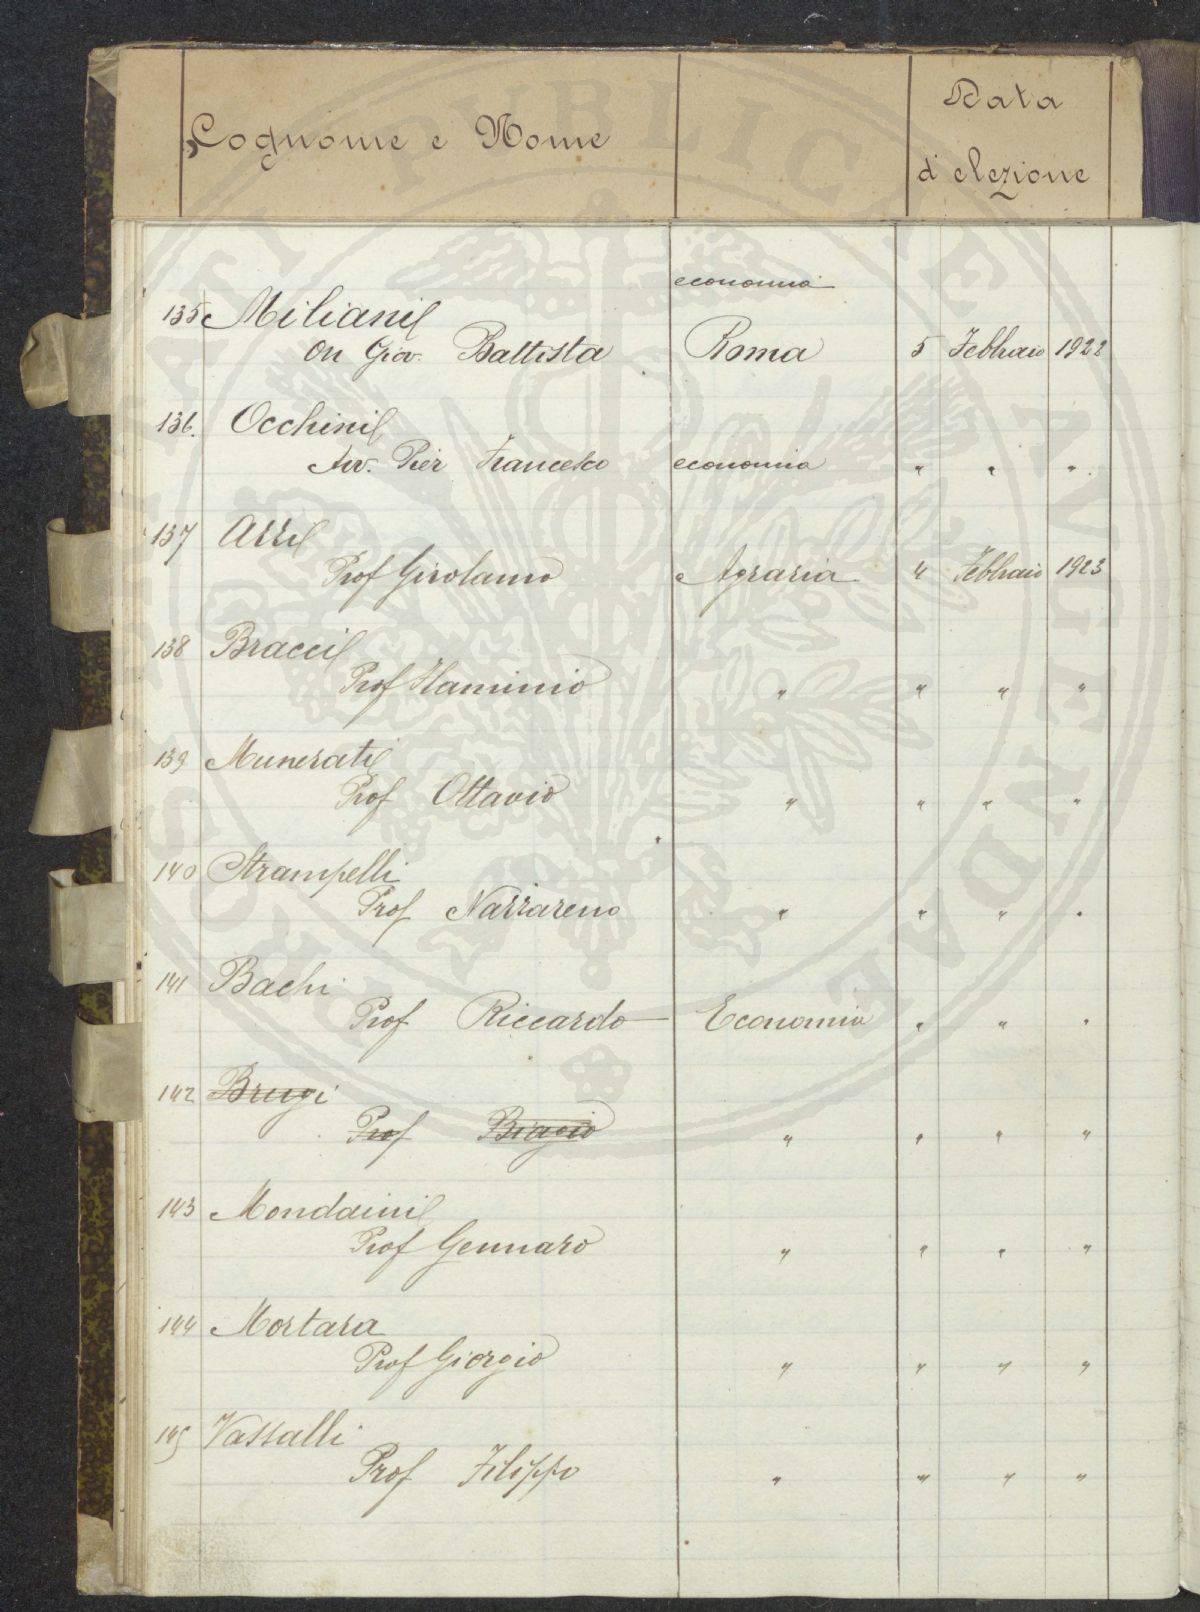 Cognome e Nome
Data
d'elezione
economia
135 Miliani
On Giov. Battista Roma 5 Febbraio 1922
136. Occhini
Avv. Pier Francesco economia " " "
137 Azzi
Prof Girolamo Agraria 4 Febbraio 1923
138 Bracci
Prof Flaminio " " " "
139 Munerati
Prof Ottavio " " " "
140 Strampelli
Prof Nazzareno " " " "
141 Bachi
Prof Riccardo Economia " " "
142 Brugi
Prof Biagio " " " "
143 Mondaini
Prof Gennaro " " " "
144 Mortara
Prof Giorgio " " " "
145 Vassalli
Prof Filippo " " " "